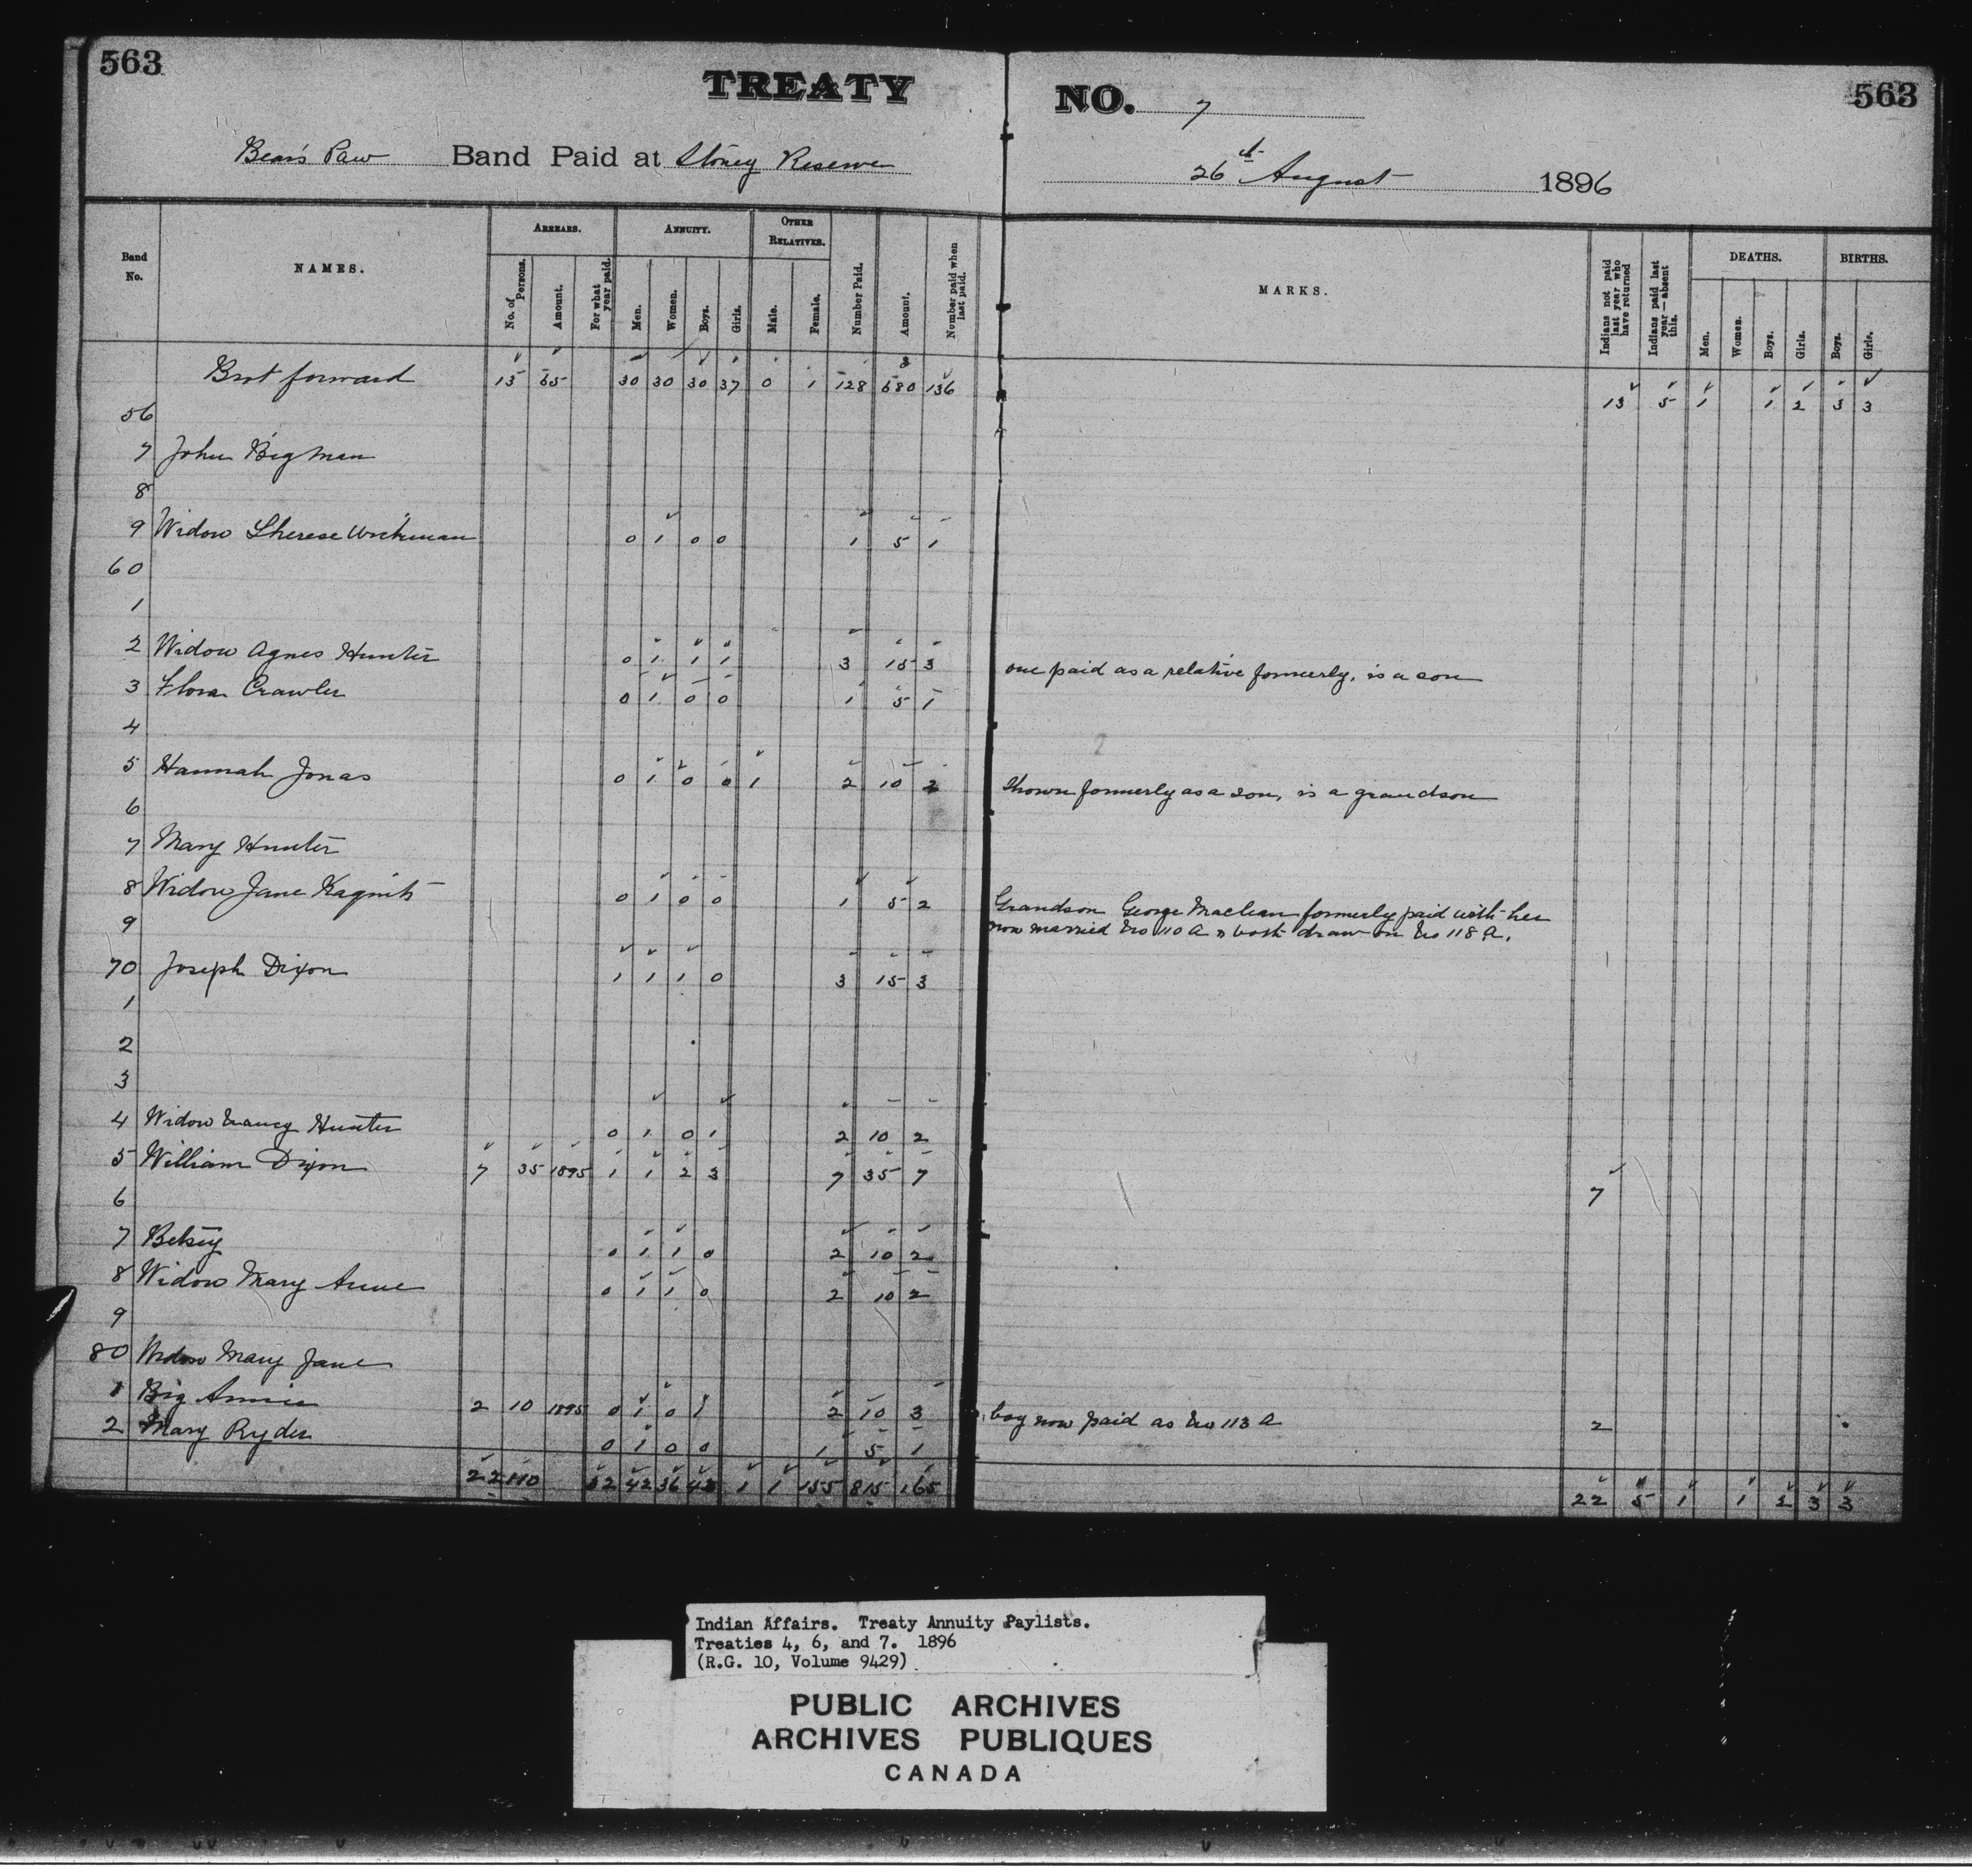 563 TREATY NO. 7 563
Bear's Paw Band Paid at Stoney Reserve 26th August 1896
Band No.
NAMES.
ARREARS.
No. of Persons.
Amount.
For what year paid.
ANNUITY.
Men.
Women.
Boys.
Girls.
OTHER RELATIVES.
Male.
Female.
Number Paid.
Amount.
Number paid when last paid.
MARKS.
Indians not paid last year who have returned
Indians paid last year—absent this.
DEATHS.
Men.
Women.
Boys.
Girls.
BIRTHS.
Boys.
Girls.
Brot forward 13 65 30 30 30 37 0 1 128 680 136 13 5 1 1 2 3 3
56
7 John Bigman
8
9 Widow Therese 0 1 0 0 1 5 1
60
1
2 Widow Agnes Hunter 0 1 1 1 3 15 3 one paid as a relative formerly, is a son
3 Flora Crawler 0 1 0 0 1 5 1
4
5 Hannah Jonas 0 1 0 0 1 2 10 2 Shown formerly as a son, is a grandson
6
7 Mary Hunter
8 Widow Jane 0 1 0 0 1 5 2 Grandson George Maclean formerly paid with her
9 now married No 110 A & both draw on No 118 A.
70 Joseph Dixon 1 1 1 0 3 15 3
1
2
3
4 Widow Nancy Hunter 0 1 0 1 2 10 2
5 William Dixon 7 35 1895 1 1 2 3 7 35 7 7
6
7 Betsy 0 1 1 0 2 10 2
8 Widow Mary Anne 0 1 1 0 2 10 2
9
80 Widow Mary Jane
1 Big Annie 2 10 1895 0 1 0 1 2 10 3 boy now paid as No 113 A 2
2 Mary Ryder 0 1 0 0 1 5 1
22 110 32 42 36 43 1 1 155 815 165 22 5 1 1 2 3 3
Indian Affairs. Treaty Annuity Paylists.
Treaties 4, 6, and 7. 1896
(R.G. 10, Volume 9429)
PUBLIC ARCHIVES
ARCHIVES PUBLIQUES
CANADA